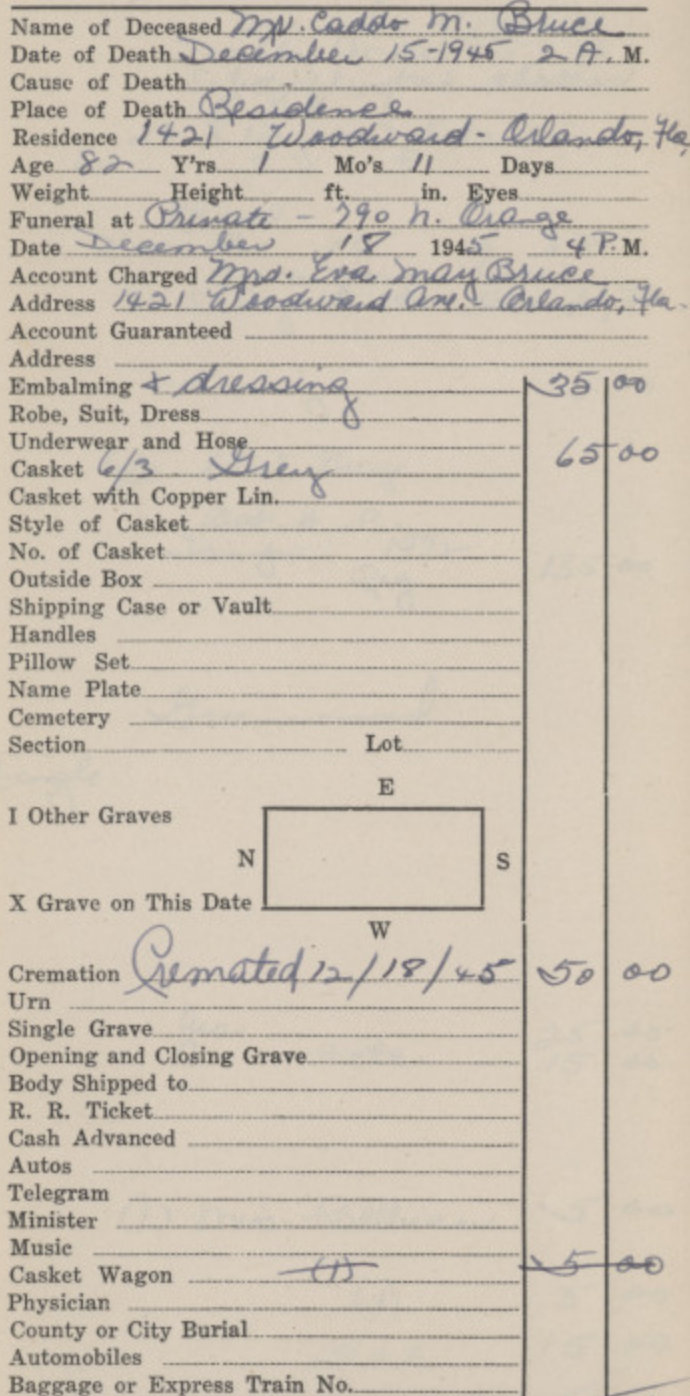 Name of Deceased Mr. Caddo M. Bruce
Date of Death December 15-1945 2 A. M.
Cause of Death
Place of Death Residence
Residence 1421 Woodward - Orlando, Fla.
Age 82 Y'rs 1 Mo's 11 Days
Weight Height ft. in. Eyes
Funeral at Private - 790 N. Orange
Date December 18 1945 4 P. M.
Account Charged Mrs. Eva May Bruce
Address 1421 Woodward Ave. Orlando, Fla.
Account Guaranteed
Address
Embalming & dressing 35 00
Robe, Suit, Dress
Underwear and Hose
Casket 6/3 Grey 65 00
Casket with Copper Lin.
Style of Casket
No. of Casket
Outside Box
Shipping Case or Vault
Handles
Pillow Set
Name Plate
Cemetery
Section Lot
E
I Other Graves
N S
X Grave on This Date
W
Cremation Cremated 12/18/45 50 00
Urn
Single Grave
Opening and Closing Grave
Body Shipped to
R. R. Ticket
Cash Advanced
Autos
Telegram
Minister
Music
Casket Wagon (1) 5 00
Physician
County or City Burial
Automobiles
Baggage or Express Train No.